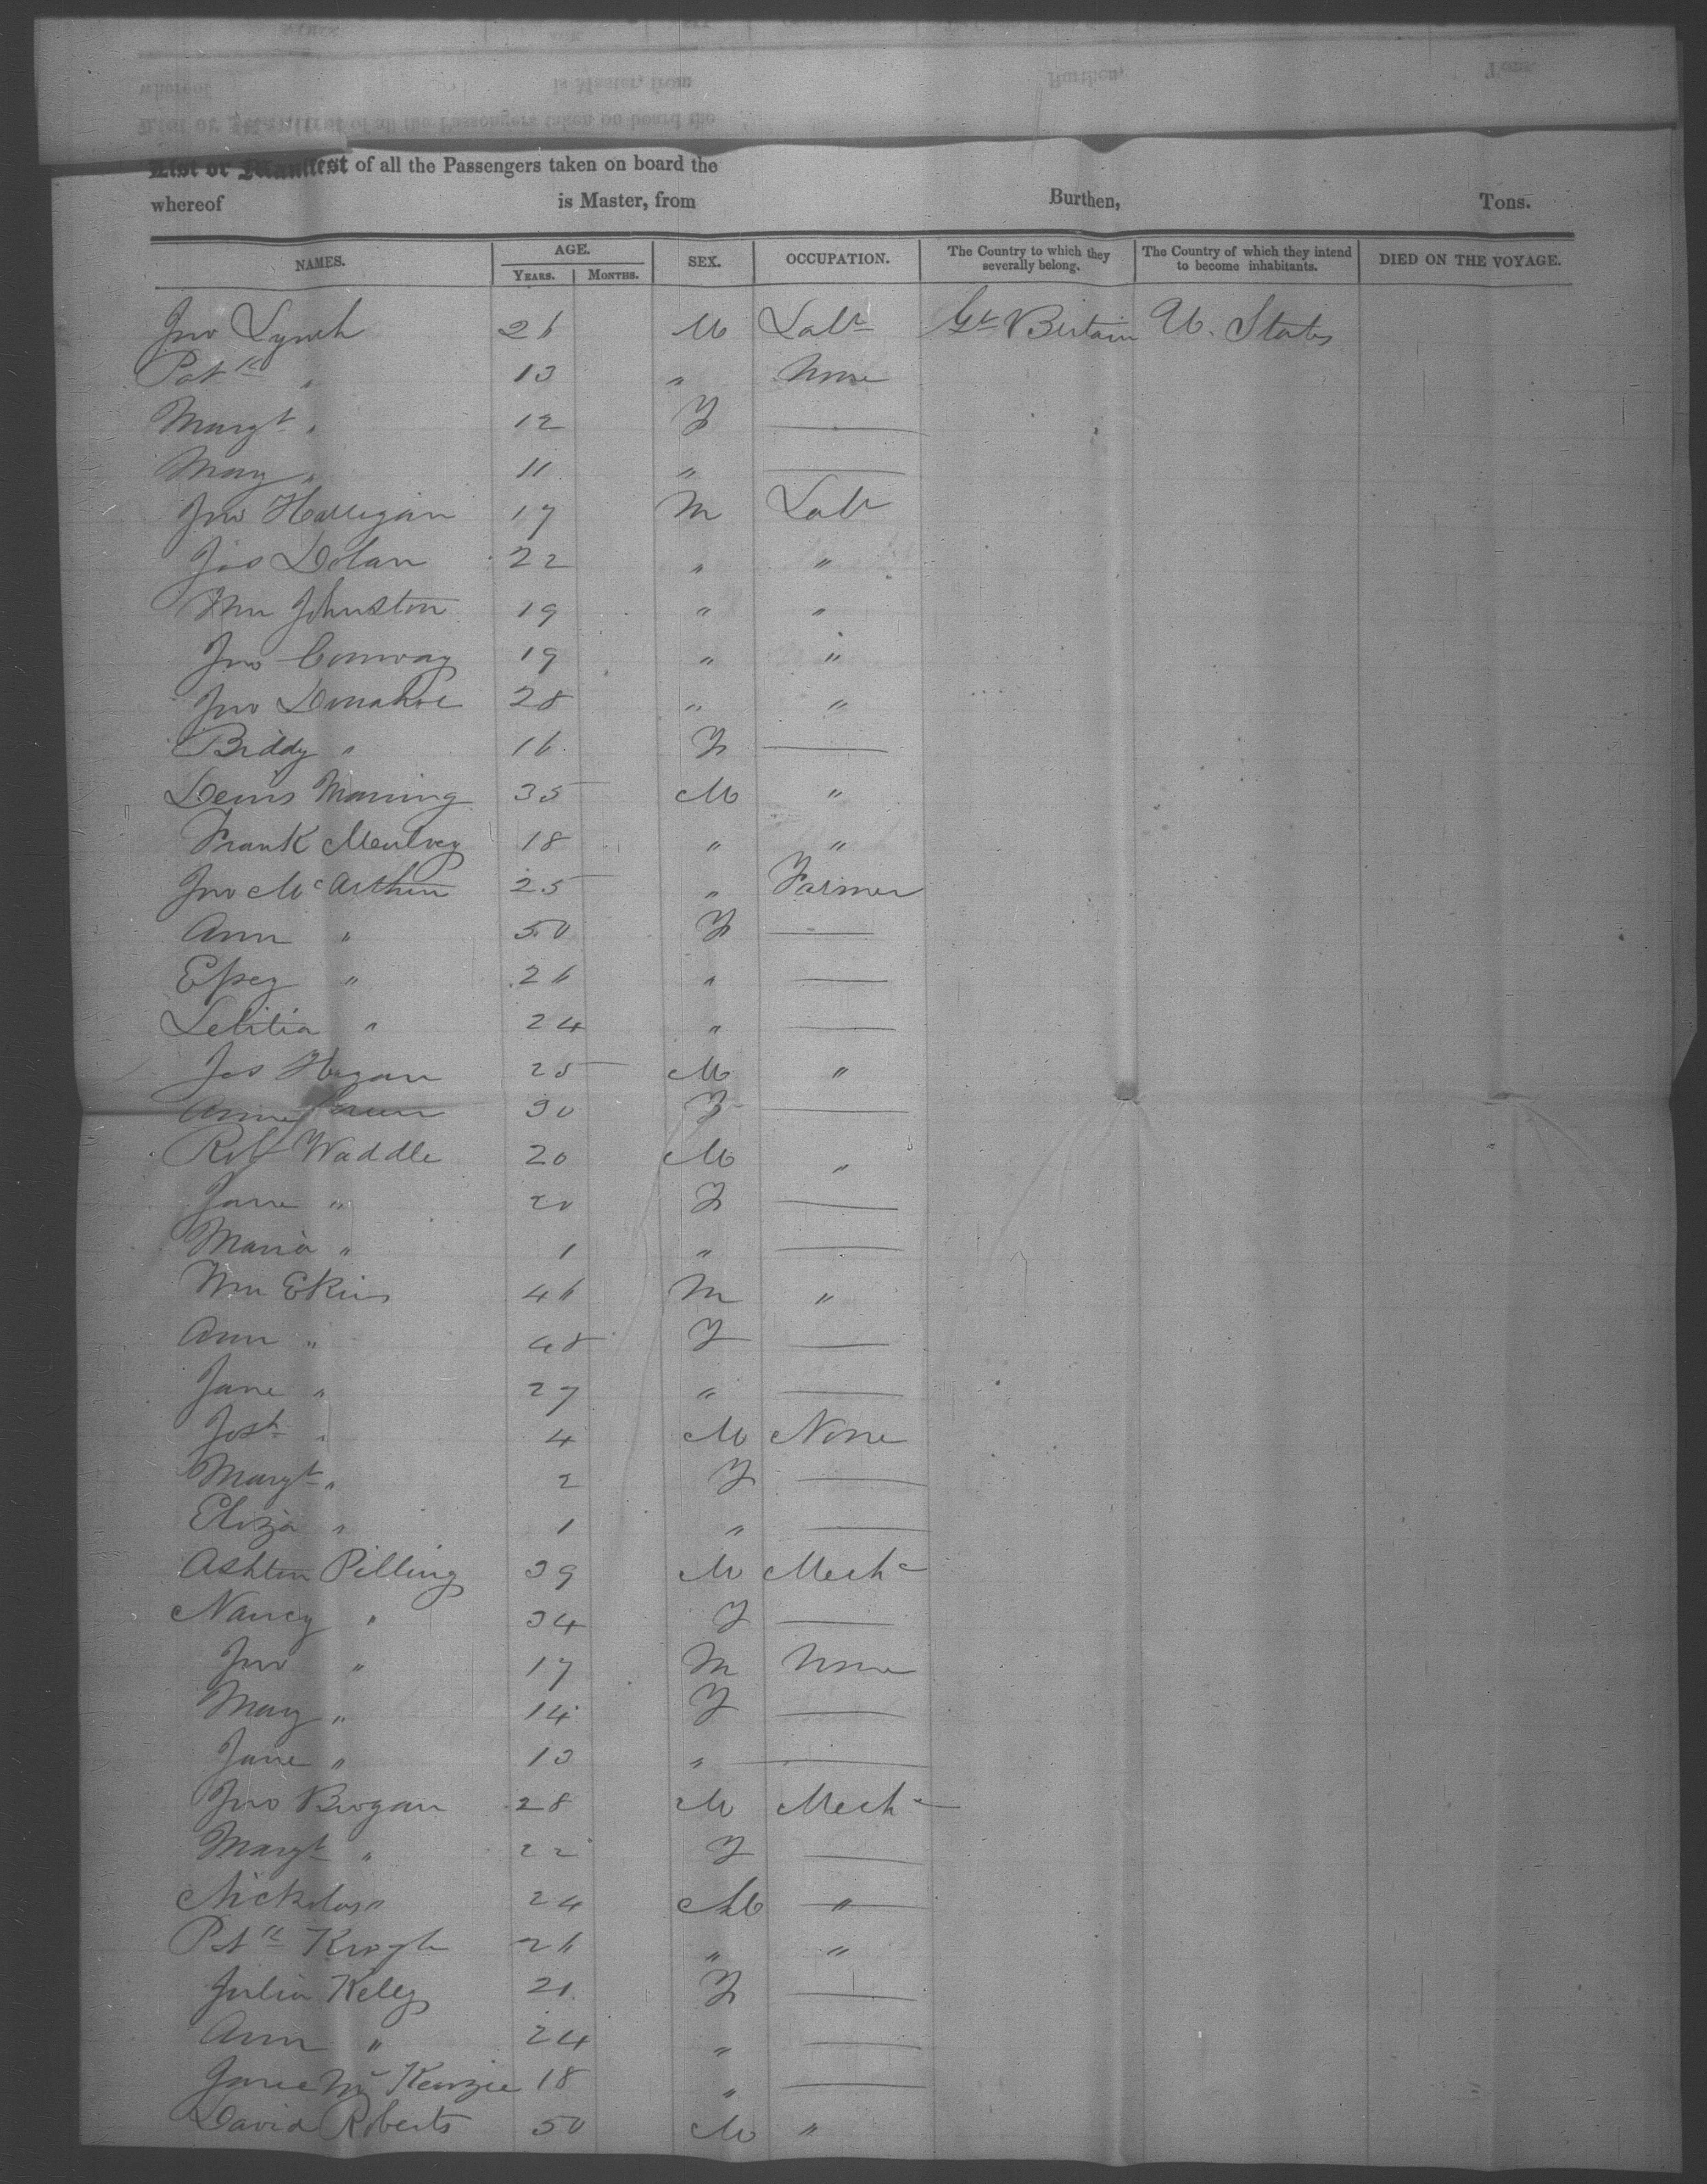 List or Manifest of all the Passengers taken on board the
whereof is Master, from Burthen, Tons.
NAMES. AGE. YEARS. MONTHS. SEX. OCCUPATION. The Country to which they severally belong. The Country of which they intend to become inhabitants. DIED ON THE VOYAGE.
Jno Lynch 26 M Labr Gt Britain U. States
Patk " 13 " None
Margt " 12 F —
Mary " 11 " —
Jno Halligan 17 M Labr
Jas Dolan 22 " "
Wm Johnston 19 " "
Jno Conway 19 " "
Jno Donahoe 28 " "
Biddy " 16 F —
Denis Maning 35 M "
Frank Mculvey 18 " "
Jno McArthur 25 " Farmer
Ann " 50 F —
Espey " 26 " —
Letitia " 24 " —
Jas Hagan 25 M "
Anne 30 F —
Robt Waddle 20 M "
Jane " 20 F —
Maria " 1 " —
Wm Ekins 46 M "
Ann " 48 F —
Jane " 27 " —
Josh " 4 M None
Margt " 2 F —
Eliza " 1 " —
Ashton Pilling 39 M Mechc
Nancy " 34 F —
Jno " 17 M None
Mary " 14 F —
Jane " 13 " —
Jno Brogan 28 M Mechc
Margt " 22 F —
Nickolas " 24 M "
Patk Keogh 26 " "
Julia Kelly 21 F —
Ann " 24 " —
Jane McKenzie 18 " —
David Roberts 50 M "